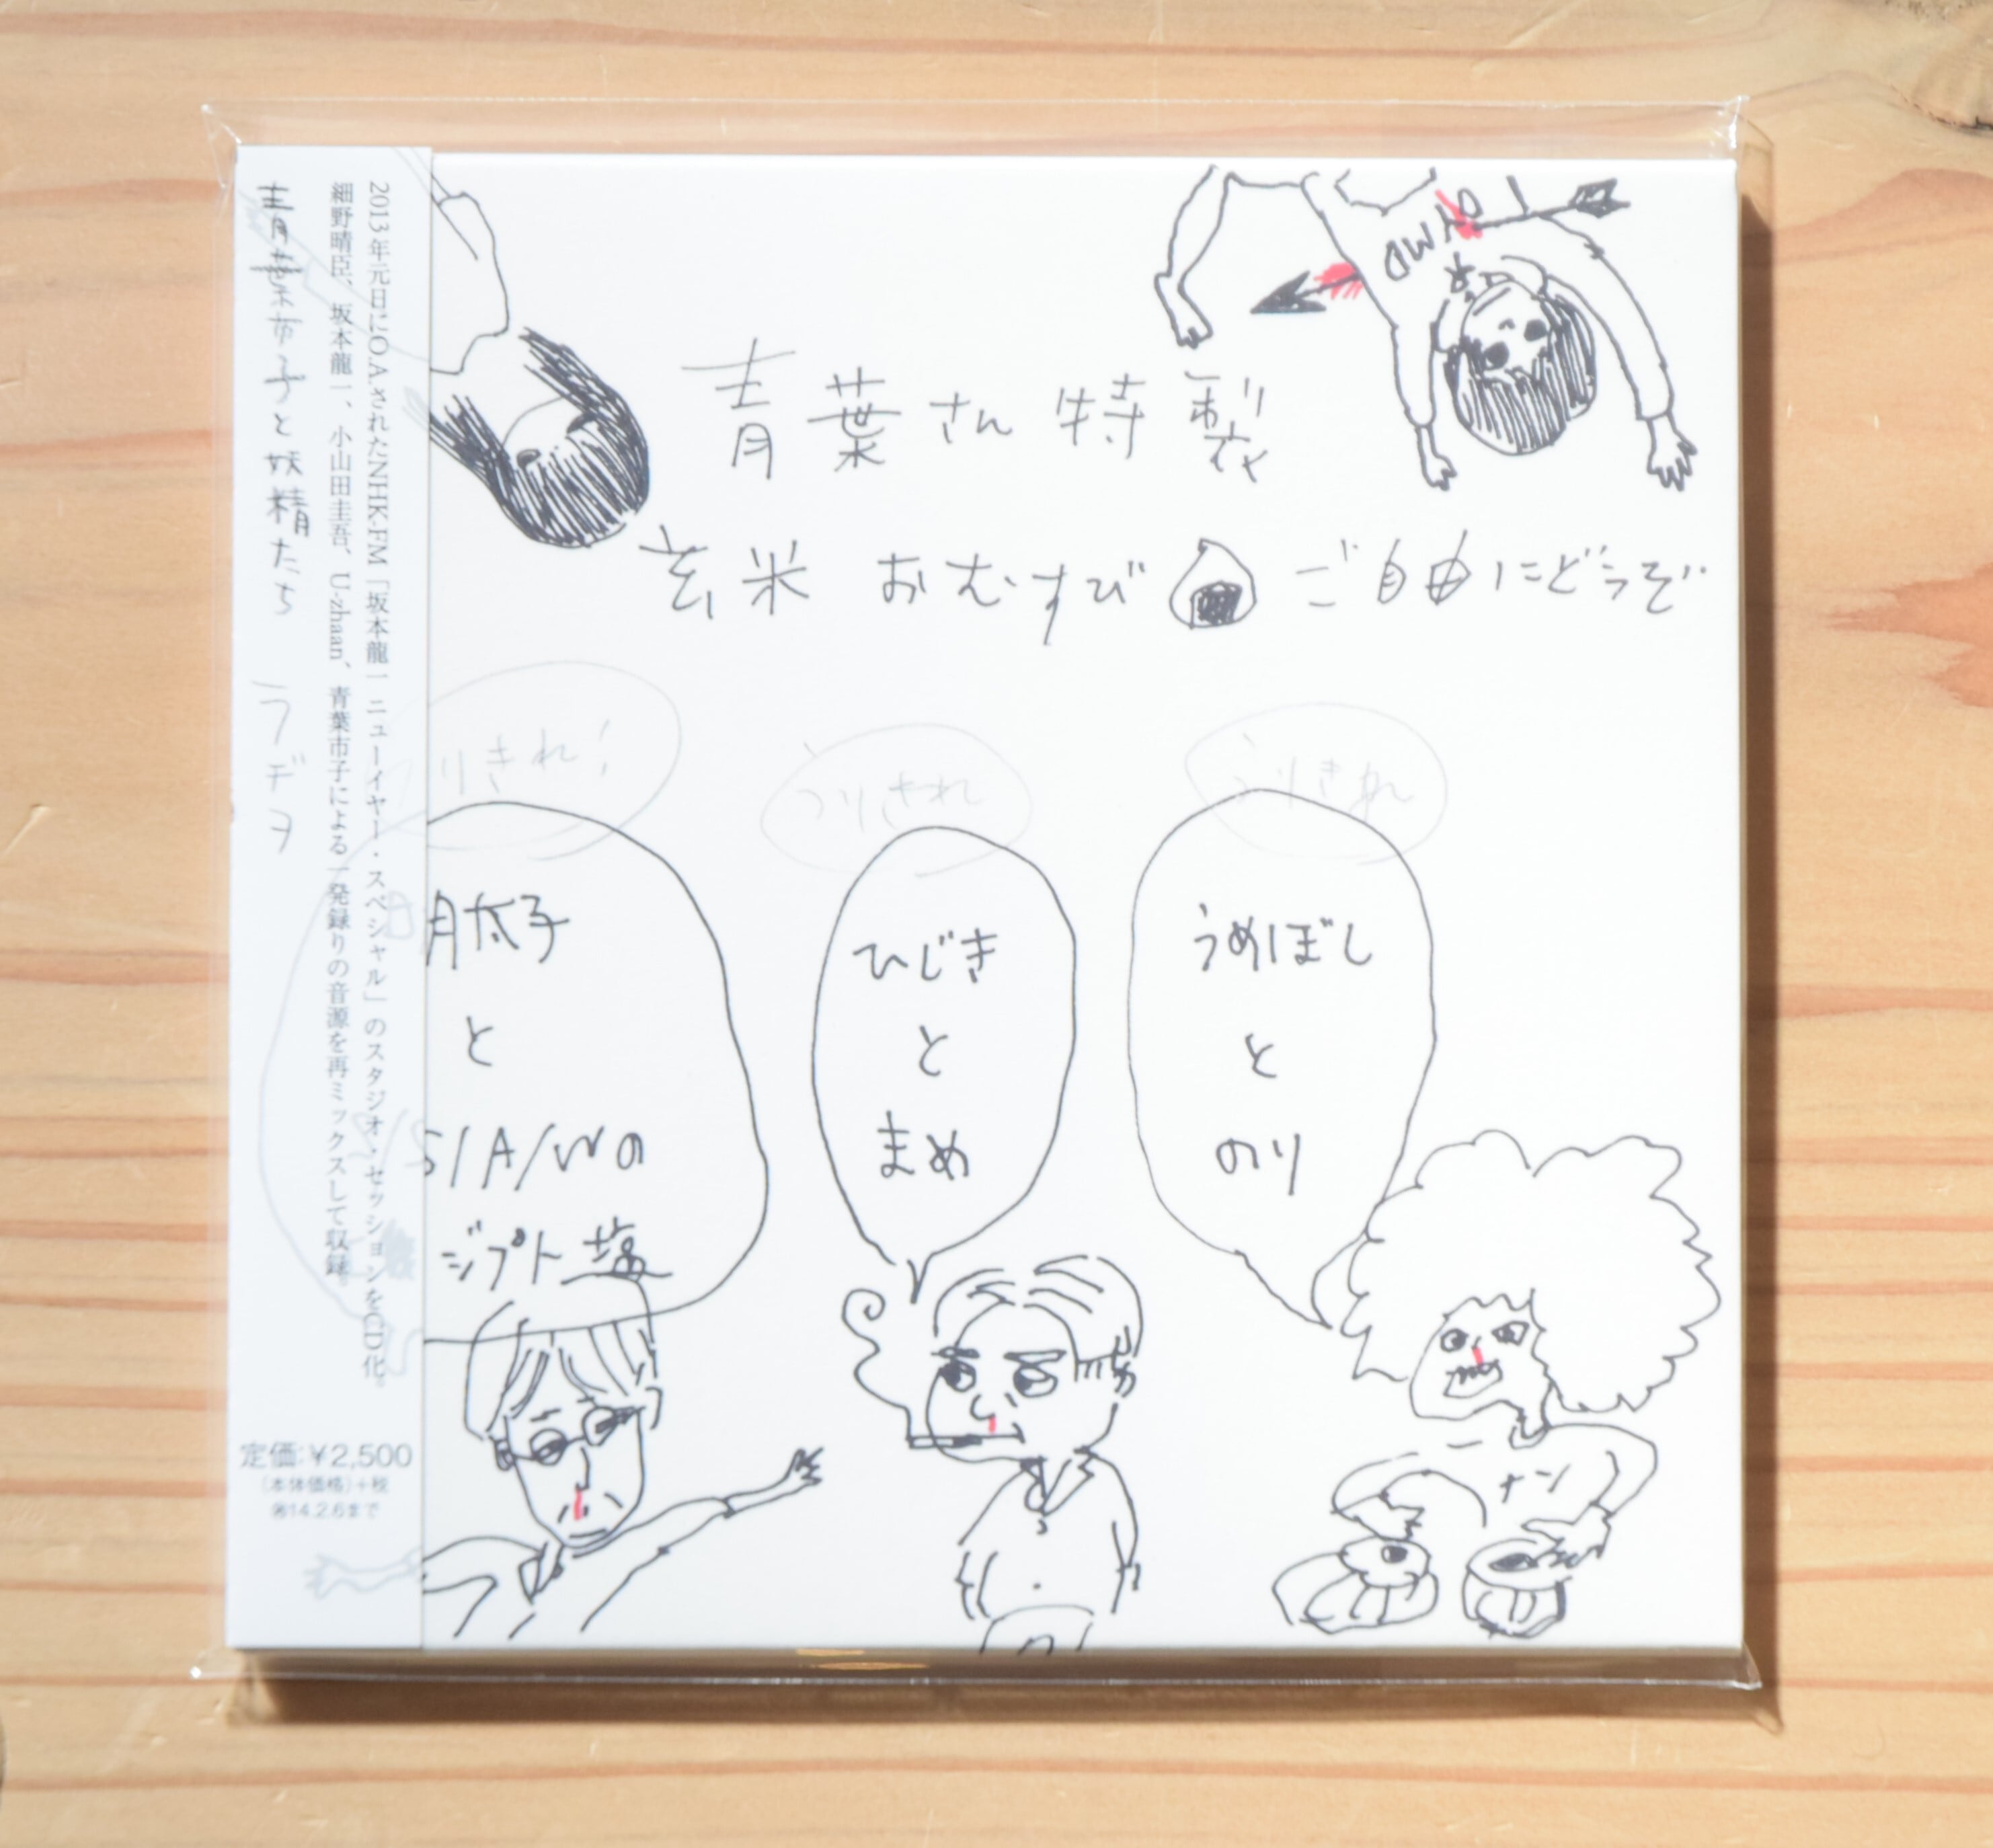 青葉市子と妖精たち
ラヂヲ
2013年元日にO.A.されたNHK-FM「坂本龍一 ニューイヤー・スペシャル」のスタジオ・セッションをCD化。
細野晴臣、坂本龍一、小山田圭吾、U-zhaan、青葉市子による一発録りの音源を再ミックスして収録。
定価:¥2,500
(本体価格)+税
㊕14.2.6まで
青葉さん特製
玄米 おむすび ご自由にどうぞ
りきれ!
うりきれ
うりきれ
明太子
と
S/A/Wの
ジプト塩
ひじき
と
まめ
うめぼし
と
のり
ナン